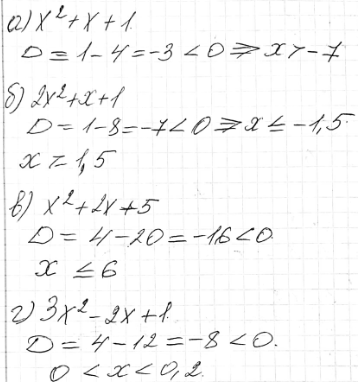 а) x² + x + 1
D = 1 - 4 = -3 < 0 ⇒ x > -7
б) 2x² + x + 1
D = 1 - 8 = -7 < 0 ⇒ x ≤ -1,5
x ≥ 1,5
в) x² + 2x + 5
D = 4 - 20 = -16 < 0
x ≤ 6
г) 3x² - 2x + 1
D = 4 - 12 = -8 < 0.
0 < x < 0,2.